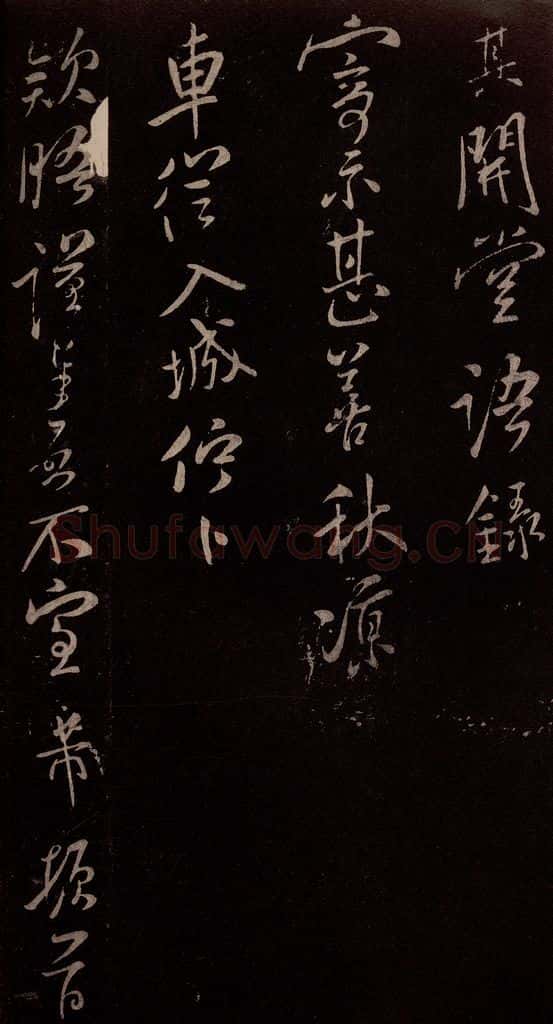 其開堂語錄
寄示甚善秋凉
車從入城佇卜
欵晤謹奉啓不宣芾頓首
Shufawang.cn